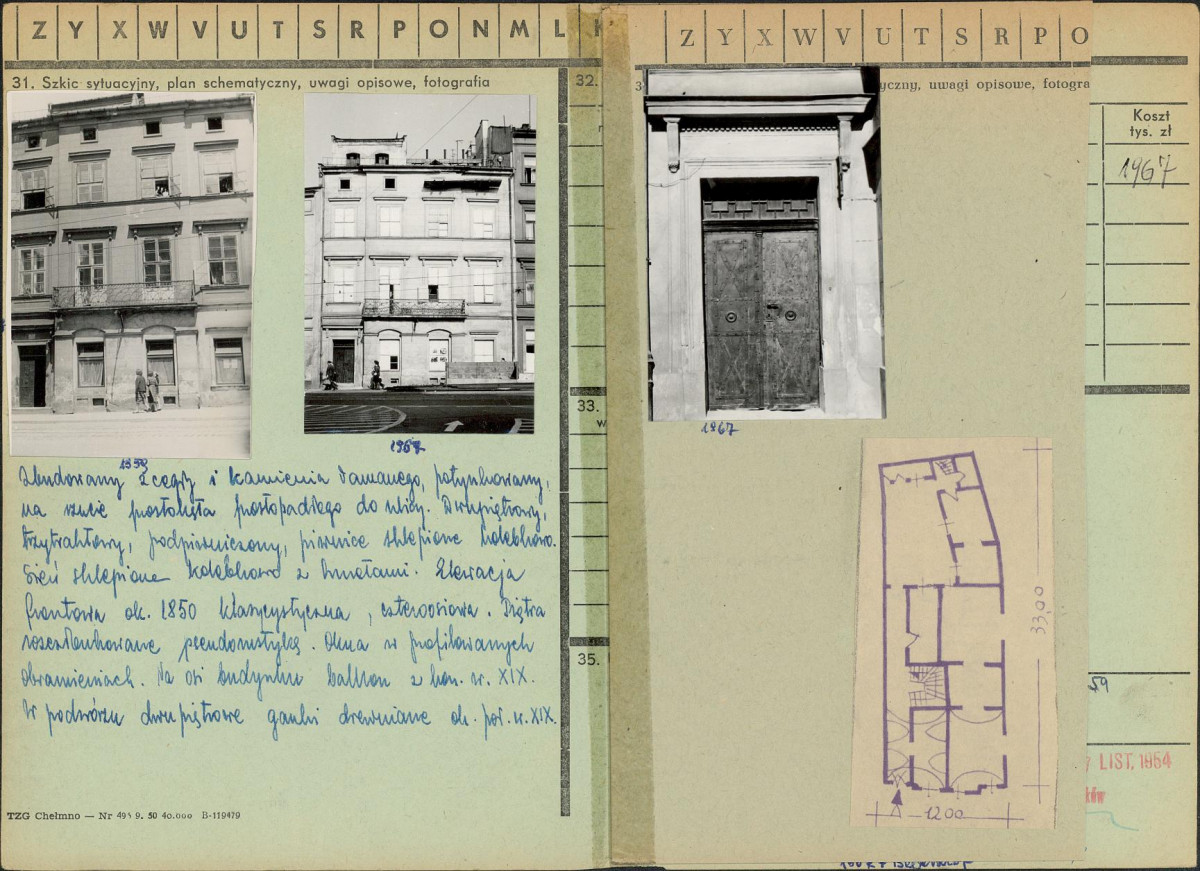 Z Y X W V U T S R P O N M L K
31. Szkic sytuacyjny, plan schematyczny, uwagi opisowe, fotografia
1959
1967
Zbudowany z cegły i kamienia łamanego, potynkowany,
na rzucie prostokąta prostopadłego do ulicy. Dwupiętrowy,
trzytraktowy, podpiwniczony, piwnice sklepione kolebkowo.
Sień sklepiona kolebkowo z lunetami. Elewacja
frontowa ok. 1850 klasycystyczna, czteroosiowa. Piętra
rozczłonkowane pseudorustyką. Okna w profilowanych
obramieniach. Na osi budynku balkon z kon. w. XIX.
W podwórzu dwupiętrowe ganki drewniane ok. poł. w. XIX.
TZG Chełmno — Nr 495 9. 50 40.000 B-119479
32.
33.
w
35.
Z Y X W V U T S R P O
3 yczny, uwagi opisowe, fotogra
1967
33,00
1200
Koszt
tys. zł
1967
59
LIST. 1954
ków